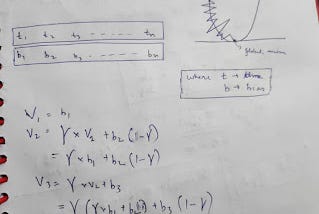 t₁ t₂ t₃ ----- tn
b₁ b₂ b₃ ----- bn
global minima
where t → time
b → bias
V₁ = b₁
V₂ = γ × V₂ + b₂ (1-γ)
= γ × b₁ + b₂ (1-γ)
V₃ = γ × v₂ + b₃
= γ (γ × b₁ + b₂ + b₃ (1-γ)